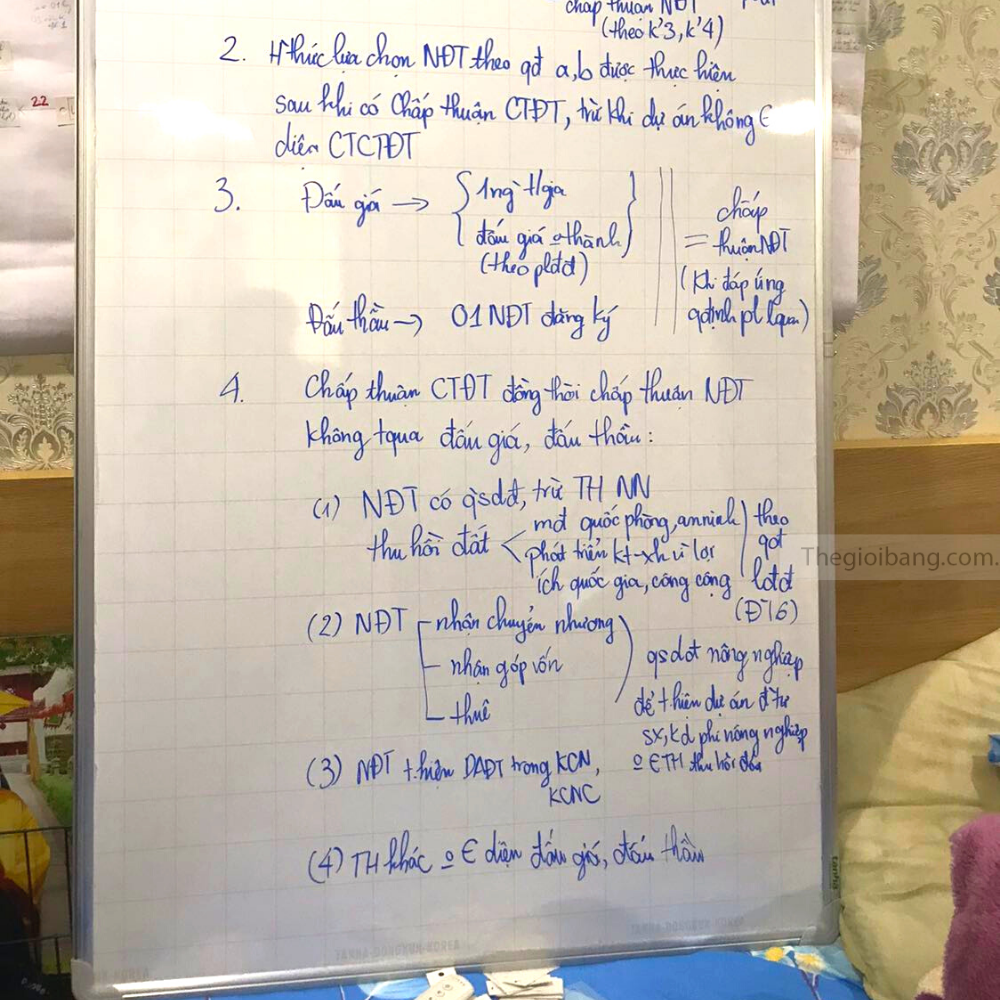 chấp thuận NĐT
(theo k'3, k'4)
2. Hthức lựa chọn NĐT theo qđ a,b được thực hiện
sau khi có Chấp thuận CTĐT, trừ khi dự án không ∈
diện CTCTĐT
3. Đấu giá → { 1ng` t/gia }
đấu giá o thành
(theo plđđ)
Đấu thầu → 01 NĐT đăng ký
chấp
= thuận NĐT
(Khi đáp ứng
qđịnh pl lquan)
4. Chấp thuận CTĐT đồng thời chấp thuận NĐT
không tqua đấu giá, đấu thầu:
(1) NĐT có qsdđ, trừ TH NN
thu hồi đất < mđ quốc phòng, an ninh
phát triển kt-xh vì lợi
ích quốc gia, công cộng
theo
qđ
lđđ
(Đ16)
(2) NĐT - nhận chuyển nhượng
- nhận góp vốn
- thuê
qsdđ nông nghiệp
để thiện dự án đtư
sx, kd phi nông nghiệp
o ∈ TH thu hồi đất
(3) NĐT thiện DAĐT trong KCN,
KCNC
(4) TH khác o ∈ diện đấu giá, đấu thầu
22
Thegioibang.com.